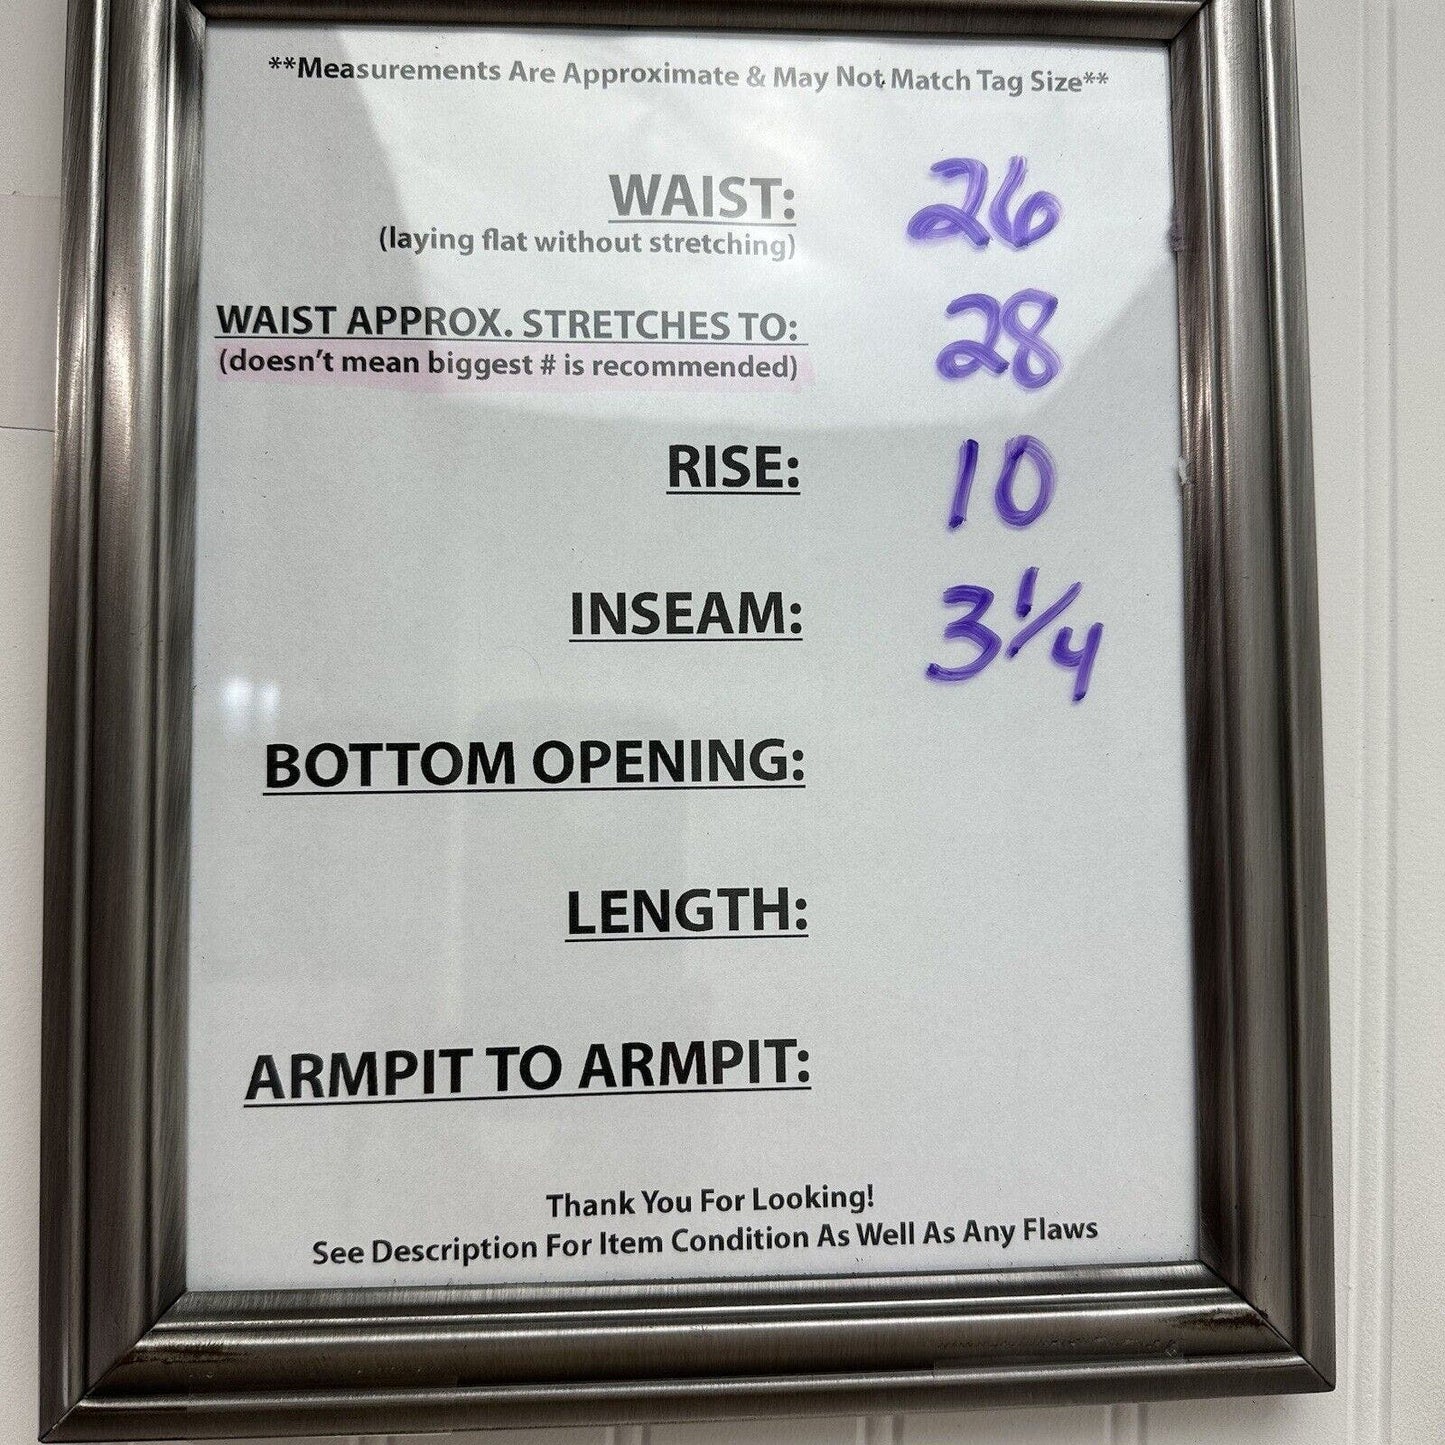 **Measurements Are Approximate & May Not Match Tag Size**
WAIST: 26
(laying flat without stretching)
WAIST APPROX. STRETCHES TO: 28
(doesn't mean biggest # is recommended)
RISE: 10
INSEAM: 3 1/4
BOTTOM OPENING:
LENGTH:
ARMPIT TO ARMPIT:
Thank You For Looking!
See Description For Item Condition As Well As Any Flaws